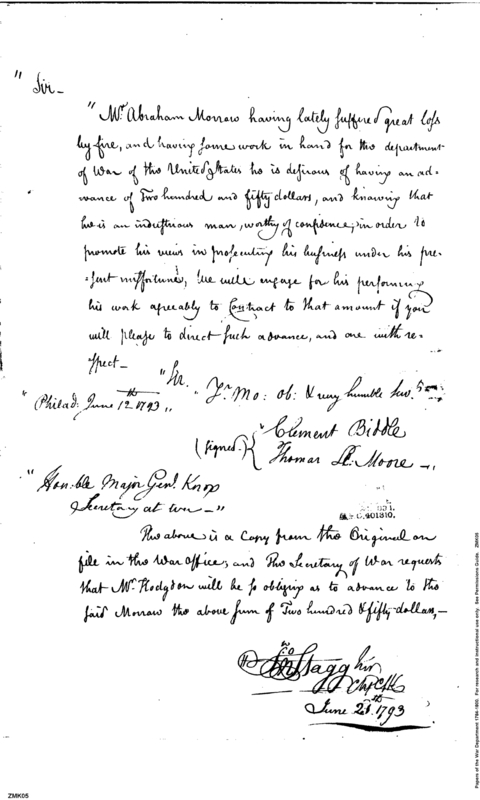 " Sir –
" Mr. Abraham Morrow having lately suffered great loss
by fire, and having some work in hand for the department
of War of the United States he is desirous of having an ad-
vance of Two hundred and fifty dollars, and knowing that
he is an industrious man, worthy of confidence, in order to
promote his views in prosecuting his business under his pre-
-sent misfortune, We will engage for his performing
his work agreeably to Contract to that amount if you
will please to direct such advance, and are with re-
spect –
" Sir. " Yr. Mo: ob: & very humble Serv.
" Philad: June 12th 1793 "
(signed.) { " Clement Biddle
Thomas L. Moore –"
" Hon:ble Major Genl. Knox
Secretary at War –"
The above is a Copy from the Original on
file in the War Office; and The Secretary of War requests
that Mr. Hodgdon will be so obliging as to advance to the
said Morrow the above sum of Two hundred & fifty dollars, –
Stagg Junr
Chf Clk
June 21st. 1793
ZMK05
Papers of the War Department 1784-1800. For research and instructional use only. See Permissions Guide. ZMK05